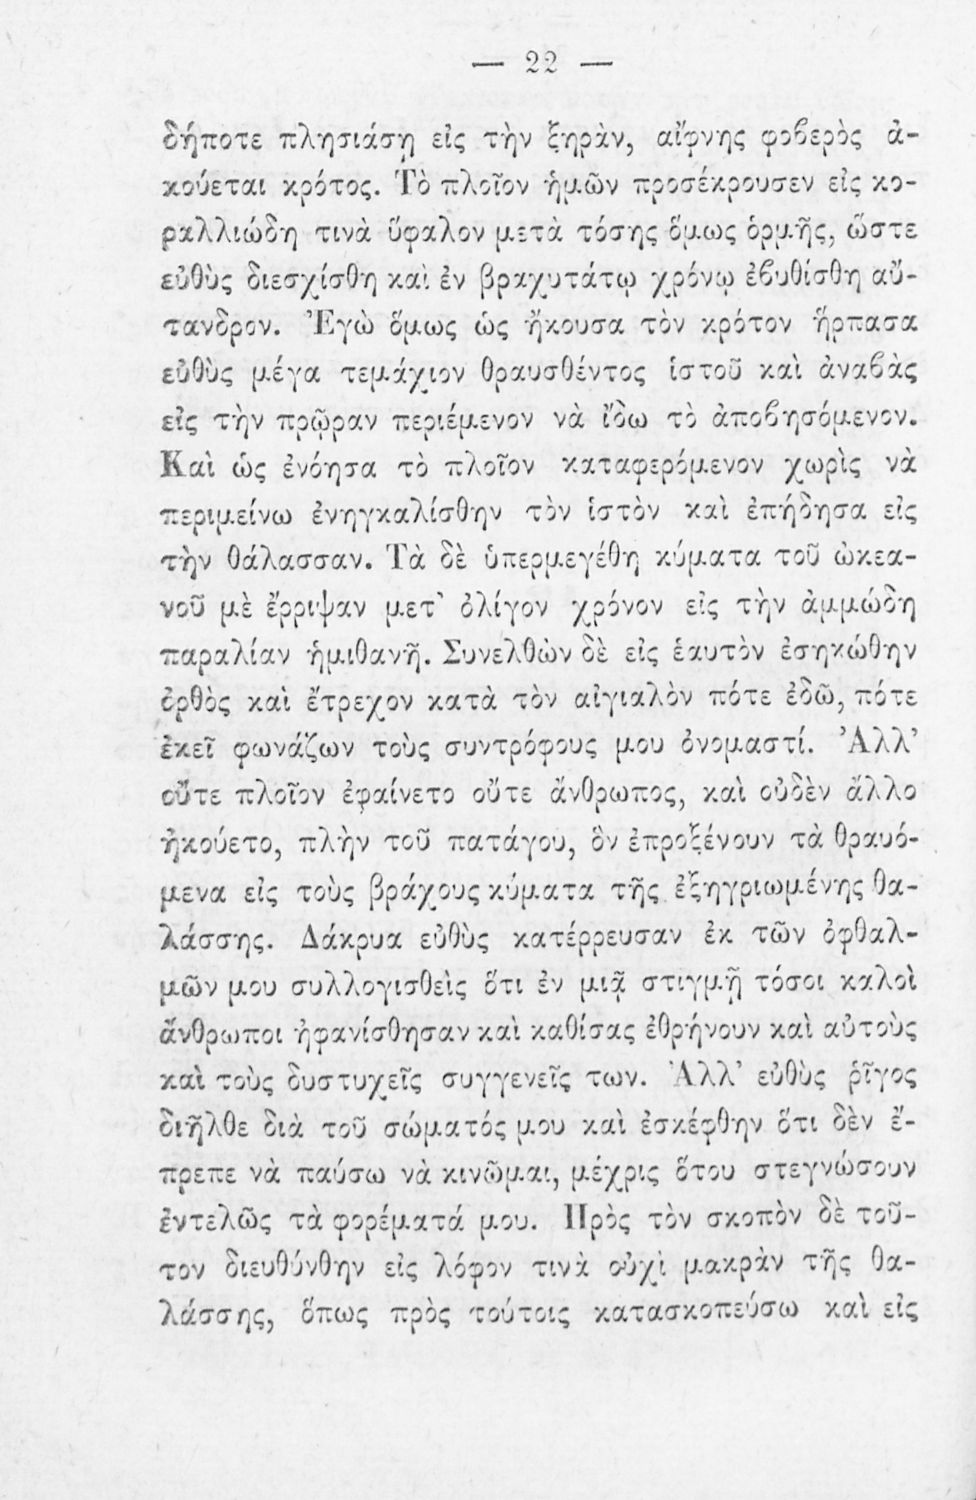 — 22 —
δήποτε πλησιάσῃ εἰς τὴν ξηρὰν, αἴφνης φοβερὸς ἀ-
κούεται κρότος. Τὸ πλοῖον ἡμῶν προσέκρουσεν εἰς κο-
ραλλιώδη τινὰ ὕφαλον μετὰ τόσης ὅμως ὁρμῆς, ὥστε
εὐθὺς διεσχίσθη καὶ ἐν βραχυτάτῳ χρόνῳ ἐβυθίσθη αὔ-
τανδρον. Ἐγὼ ὅμως ὡς ἤκουσα τὸν κρότον ἥρπασα
εὐθὺς μέγα τεμάχιον θραυσθέντος ἱστοῦ καὶ ἀναβὰς
εἰς τὴν πρῷραν περιέμενον νὰ ἴδω τὸ ἀποβησόμενον.
Καὶ ὡς ἐνόησα τὸ πλοῖον καταφερόμενον χωρὶς νὰ
περιμείνω ἐνηγκαλίσθην τὸν ἱστὸν καὶ ἐπήδησα εἰς
τὴν θάλασσαν. Τὰ δὲ ὑπερμεγέθη κύματα τοῦ ὠκεα-
νοῦ μὲ ἔρριψαν μετ᾽ ὀλίγον χρόνον εἰς τὴν ἀμμώδη
παραλίαν ἡμιθανῆ. Συνελθὼν δὲ εἰς ἑαυτὸν ἐσηκώθην
ὀρθὸς καὶ ἔτρεχον κατὰ τὸν αἰγιαλὸν πότε ἐδῶ, πότε
ἐκεῖ φωνάζων τοὺς συντρόφους μου ὀνομαστί. Ἀλλ᾽
οὔτε πλοῖον ἐφαίνετο οὔτε ἄνθρωπος, καὶ οὐδὲν ἄλλο
ἠκούετο, πλὴν τοῦ πατάγου, ὃν ἐπροξένουν τὰ θραυό-
μενα εἰς τοὺς βράχους κύματα τῆς ἐξηγριωμένης θα-
λάσσης. Δάκρυα εὐθὺς κατέρρευσαν ἐκ τῶν ὀφθαλ-
μῶν μου συλλογισθεὶς ὅτι ἐν μιᾷ στιγμῇ τόσοι καλοὶ
ἄνθρωποι ἠφανίσθησαν καὶ καθίσας ἐθρήνουν καὶ αὐτοὺς
καὶ τοὺς δυστυχεῖς συγγενεῖς των. Ἀλλ᾽ εὐθὺς ῥῖγος
διῆλθε διὰ τοῦ σώματός μου καὶ ἐσκέφθην ὅτι δὲν ἔ-
πρεπε νὰ παύσω νὰ κινῶμαι, μέχρις ὅτου στεγνώσουν
ἐντελῶς τὰ φορέματά μου. Πρὸς τὸν σκοπὸν δὲ τοῦ-
τον διευθύνθην εἰς λόφον τινὰ οὐχὶ μακρὰν τῆς θα-
λάσσης, ὅπως πρὸς τούτοις κατασκοπεύσω καὶ εἰς